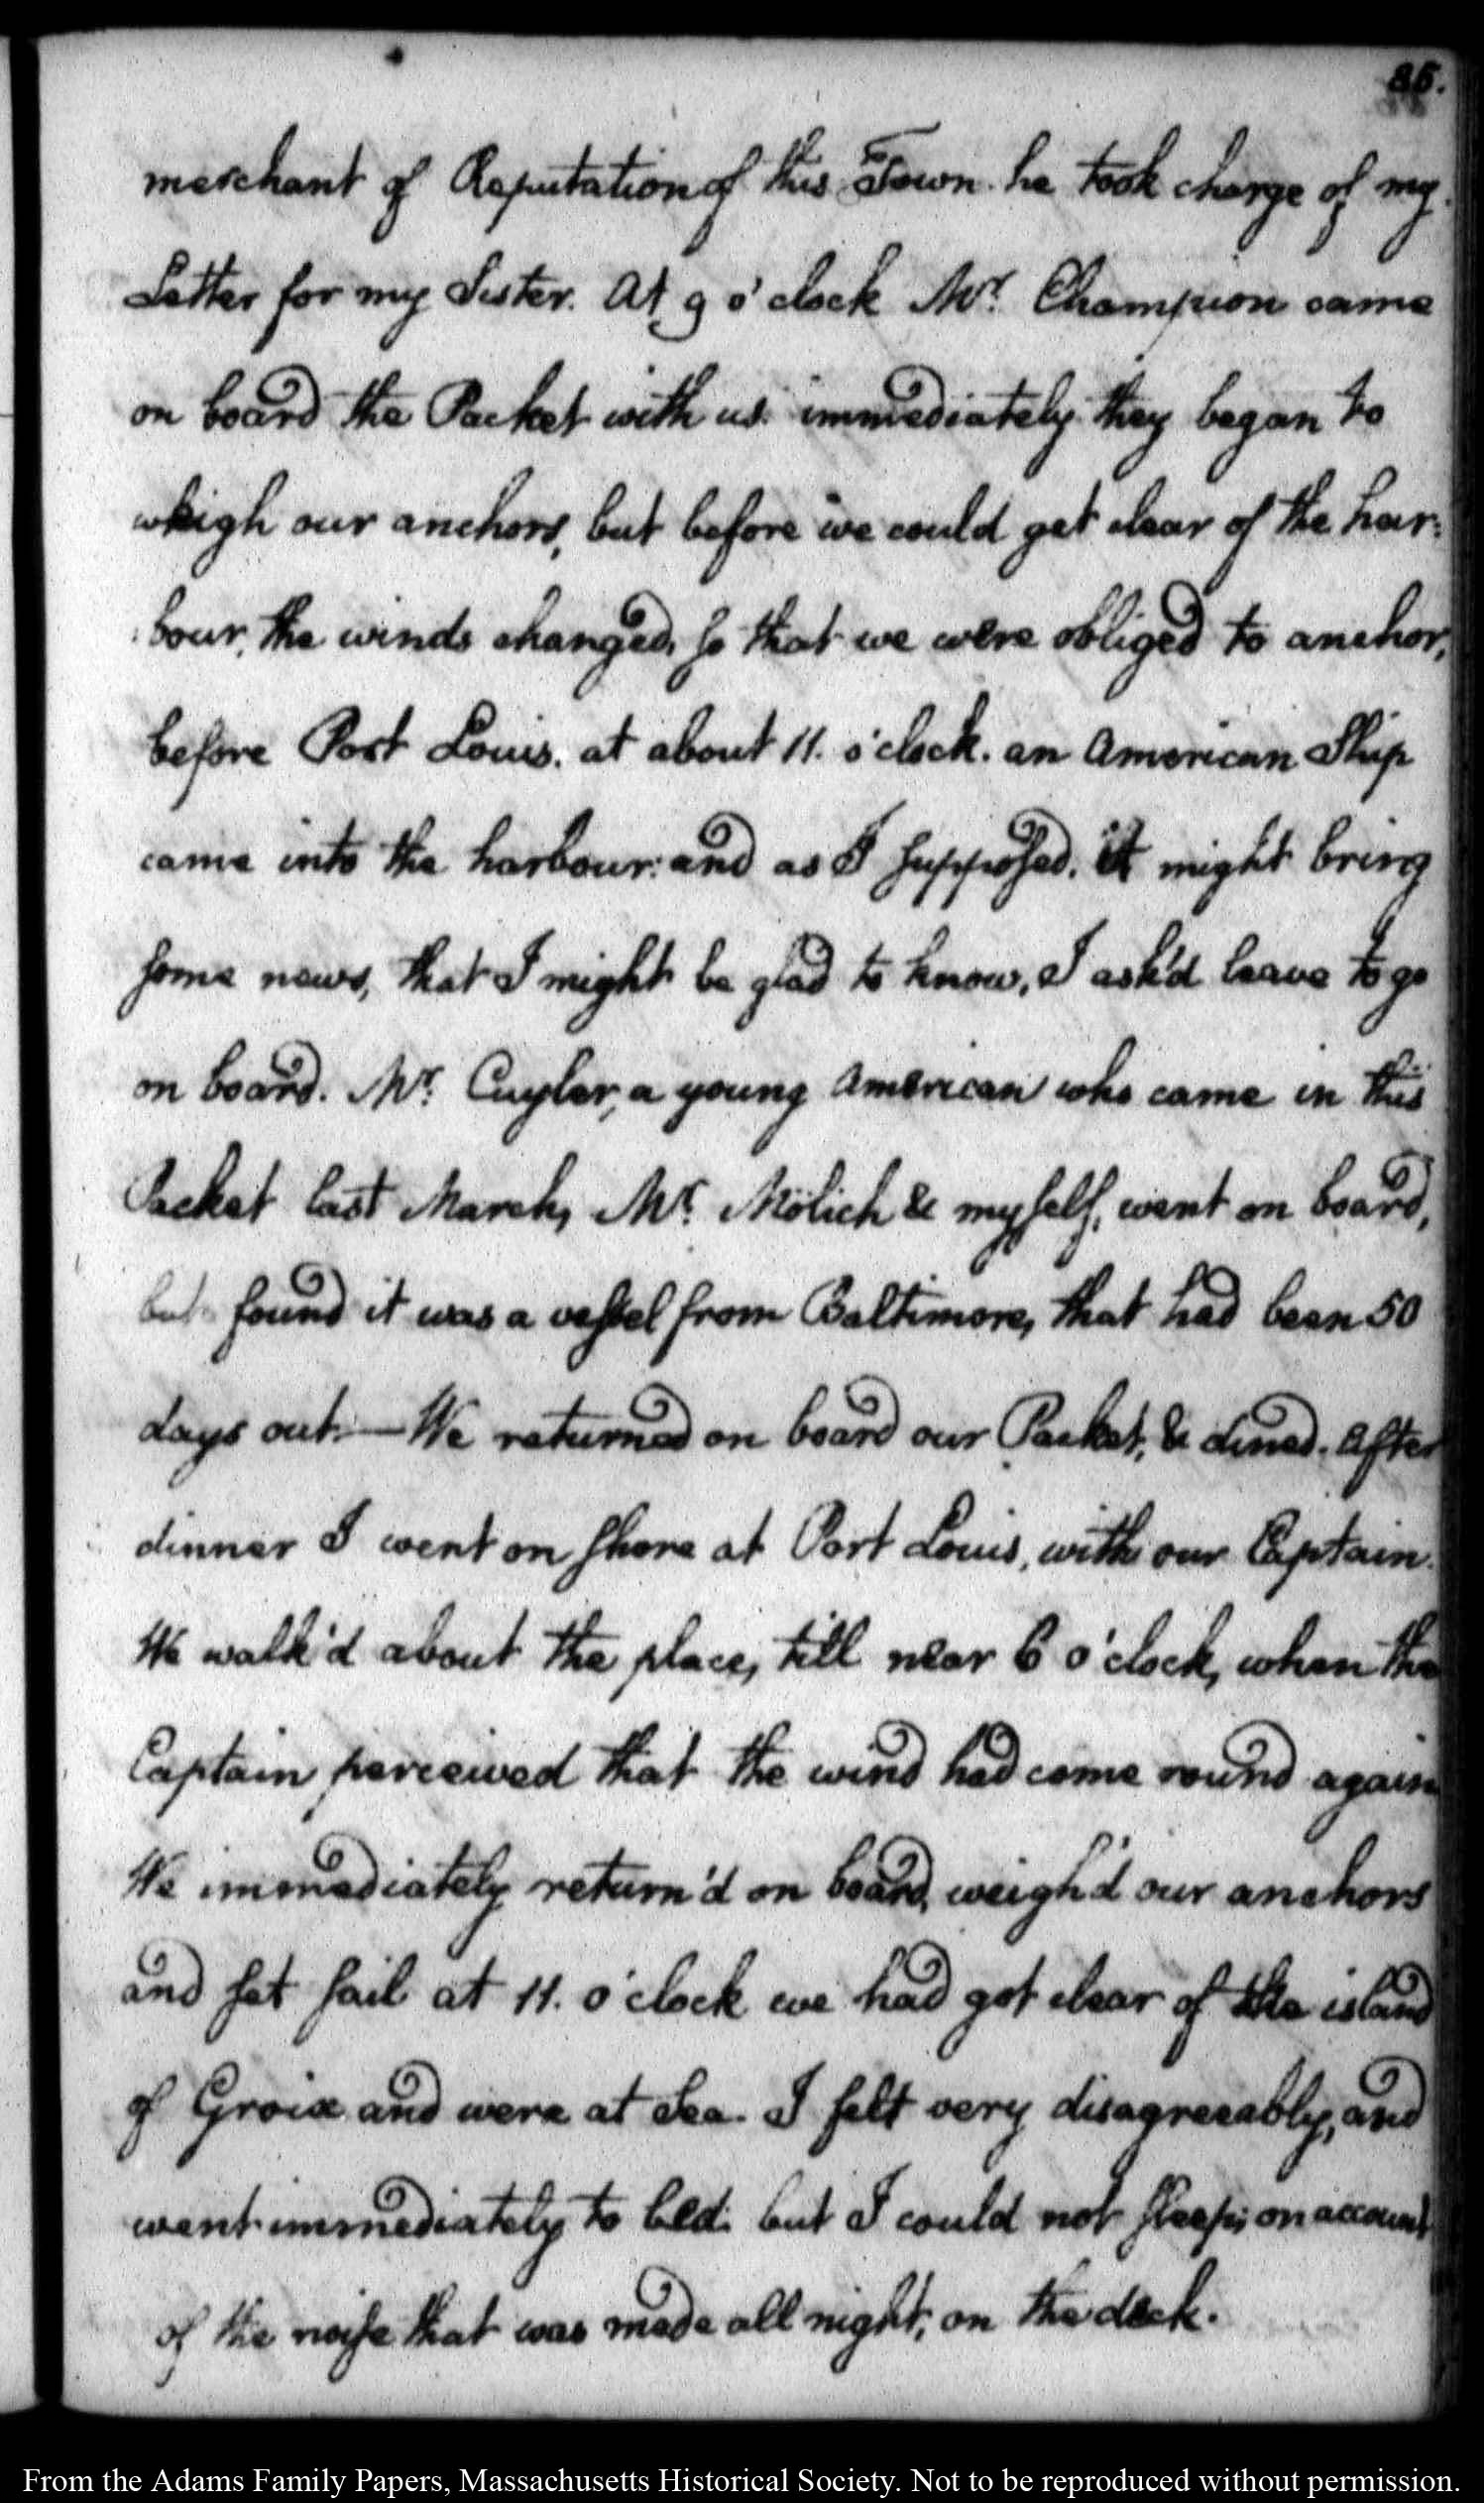 85.
merchant of Reputation of this Town. he took charge of my
Letter for my Sister. At 9 o'clock Mr. Champion came
on board the Packet with us. immediately they began to
wheigh our anchors, but before we could get clear of the har-
bour, the winds changed, so that we were obliged to anchor,
before Port Louis. at about 11. o'clock. an American Ship
came into the harbour: and as I supposed. it might bring
some news, that I might be glad to know, I ask'd leave to go
on board. Mr. Cuyler, a young American who came in this
Packet last March, Mr. Mölich & myself, went on board,
but found it was a vessel from Baltimore, that had been 50
days out.—We returned on board our Packet, & dined. After
dinner I went on shore at Port Louis, with our Captain.
We walk'd about the place, till near 6 o'clock, when the
Captain perceived that the wind had come round again
We immediately return'd on board, weigh'd our anchors
and set sail at 11. o'clock we had got clear of the island
of Groix and were at Sea. I felt very disagreeably, and
went immediately to bed: but I could not sleep; on account
of the noise that was made all night, on the deck.
From the Adams Family Papers, Massachusetts Historical Society. Not to be reproduced without permission.